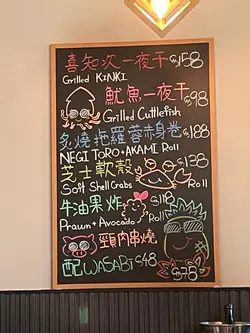 喜知次一夜干 $158
Grilled KiNKi
魷魚一夜干 $98
Grilled Cuttlefish
炙燒拖羅蓉赤身卷 $188
NEGI TORO + AKAMI Roll
芝士軟殼 $138
Soft Shell Crabs Roll
牛油果炸 $118
Prawn + Avocado Roll
頸肉串燒
配 WASABI $48
$78